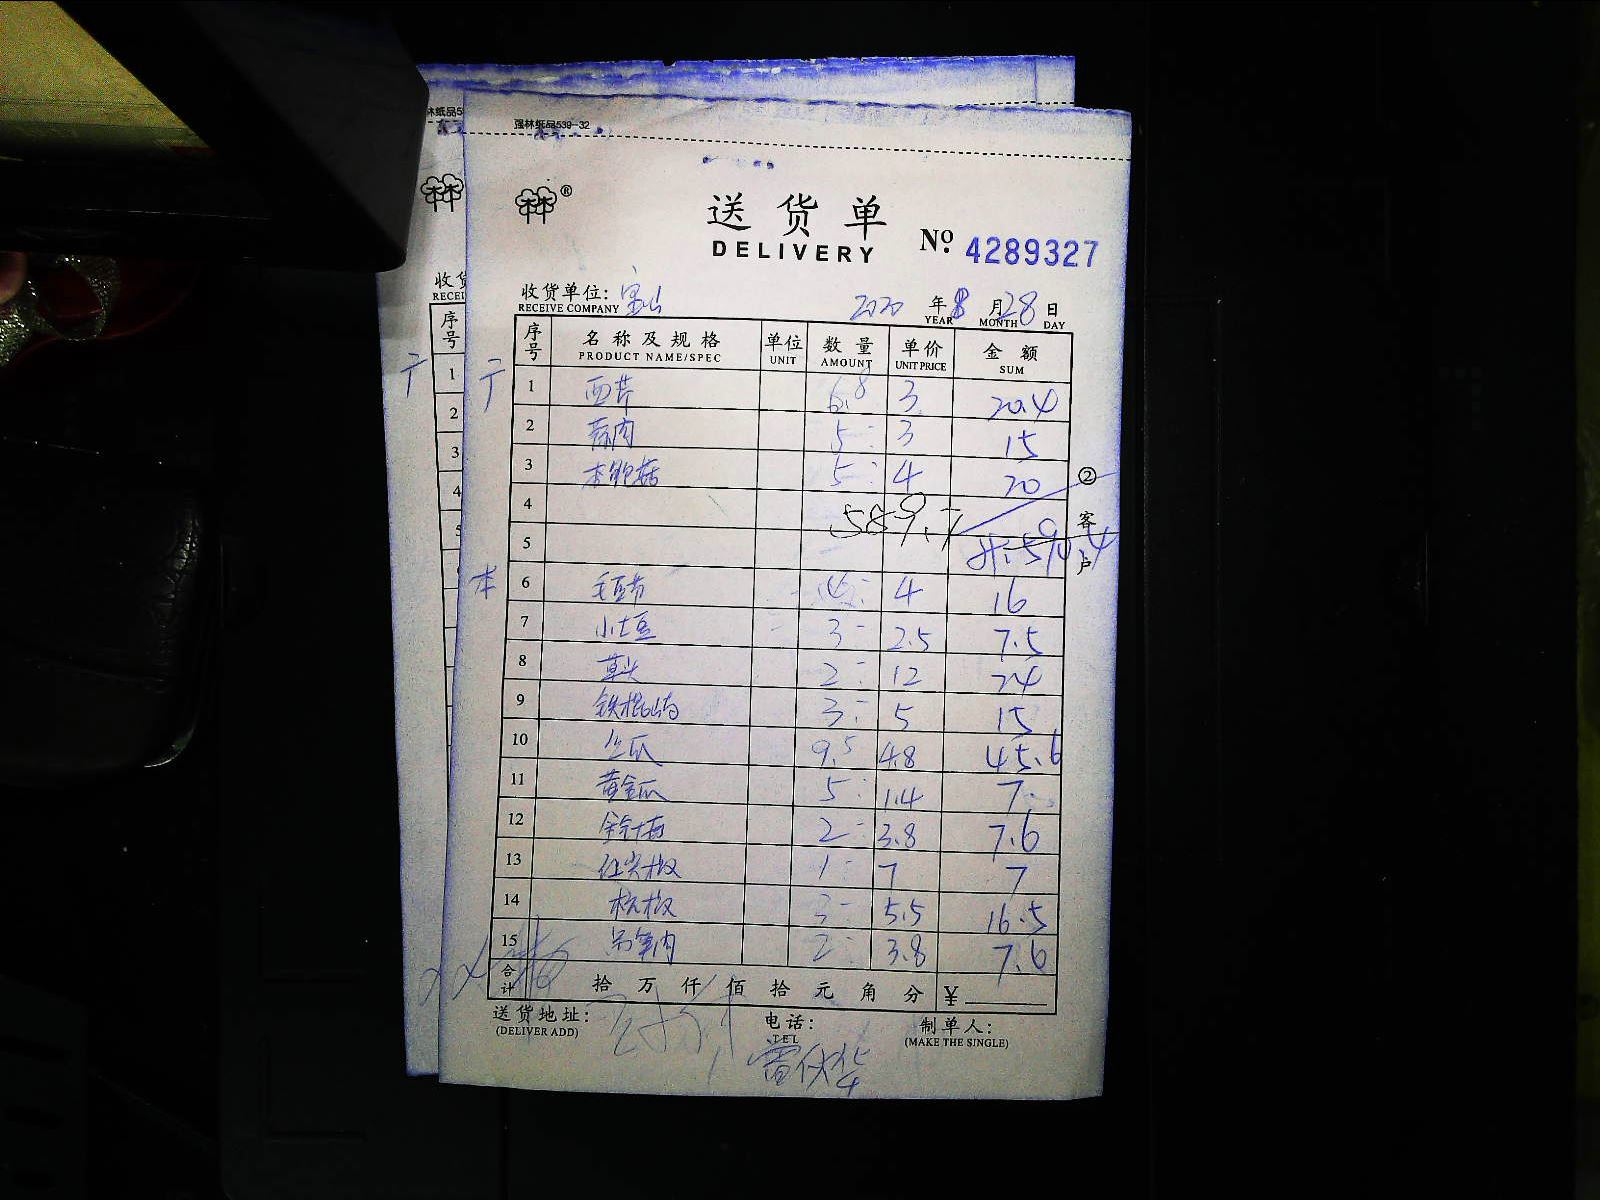 林纸品5
强林纸品539-32
®
送货单
DELIVERY
№ 4289327
收货单位: 宝山
RECEIVE COMPANY
2020 年 8 月 28 日
YEAR MONTH DAY
收货
RECEI
序号
1
2
3
4
5
序号 名称及规格 单位 数量 单价 金额
PRODUCT NAME/SPEC UNIT AMOUNT UNIT PRICE SUM
1 西芹 6.8 3 20.4
2 蒜肉 5 3 15
3 杏鲍菇 5 4 20
4 589.7
5
② 客户
本
6 毛豆节 4 4 16
7 小土豆 3 2.5 7.5
8 草头 2 12 24
9 铁棍山药 3 5 15
10 丝瓜 9.5 4.8 45.6
11 黄金瓜 5 1.4 7
12 2 3.8 7.6
13 红尖椒 1 7 7
14 杭椒 3 5.5 16.5
15 2 3.8 7.6
合计 拾 万 仟 佰 拾 元 角 分 ¥
送货地址:
(DELIVER ADD)
电话:
TEL
制单人:
(MAKE THE SINGLE)